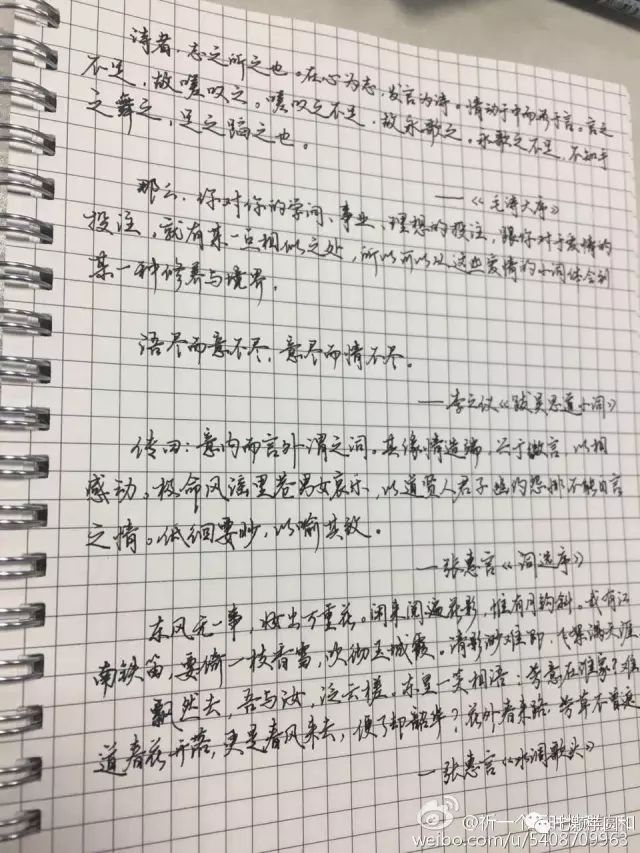 诗者，志之所之也。在心为志，发言为诗。情动于中而形于言。言之
不足，故嗟叹之。嗟叹之不足，故永歌之。永歌之不足，不知手
之舞之，足之蹈之也。
——《毛诗大序》
那么，你对你的学问、事业、理想的投注，跟你对于爱情的
投注，就有某一点相似之处，所以可以从这些爱情的小词体会到
某一种修养与境界。
语尽而意不尽，意尽而情不尽。
——李之仪《跋吴思道小词》
传曰：意内而言外谓之词。其缘情造端，兴于微言，以相
感动。极命风谣里巷男女哀乐，以道贤人君子幽约怨悱不能自言
之情。低徊要眇，以喻其致。
——张惠言《词选序》
东风无一事，妆出万重花。闲来阅遍花影，惟有月钩斜。我有江
南铁笛，要倚一枝香雪，吹彻玉城霞。清影渺难即，飞絮满天涯。
飘然去，吾与汝，泛云槎。东皇一笑相语：芳意在谁家？难
道春花开落，更是春风来去，便了却韶华？花外春来路，芳草不曾遮
——张惠言《水调歌头》
weibo.com/u/5403709963